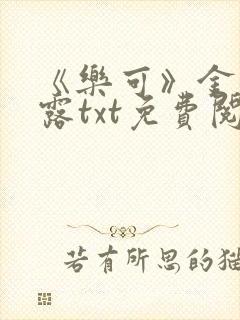 《樂可》全
露txt免費閱
若有所思的貓